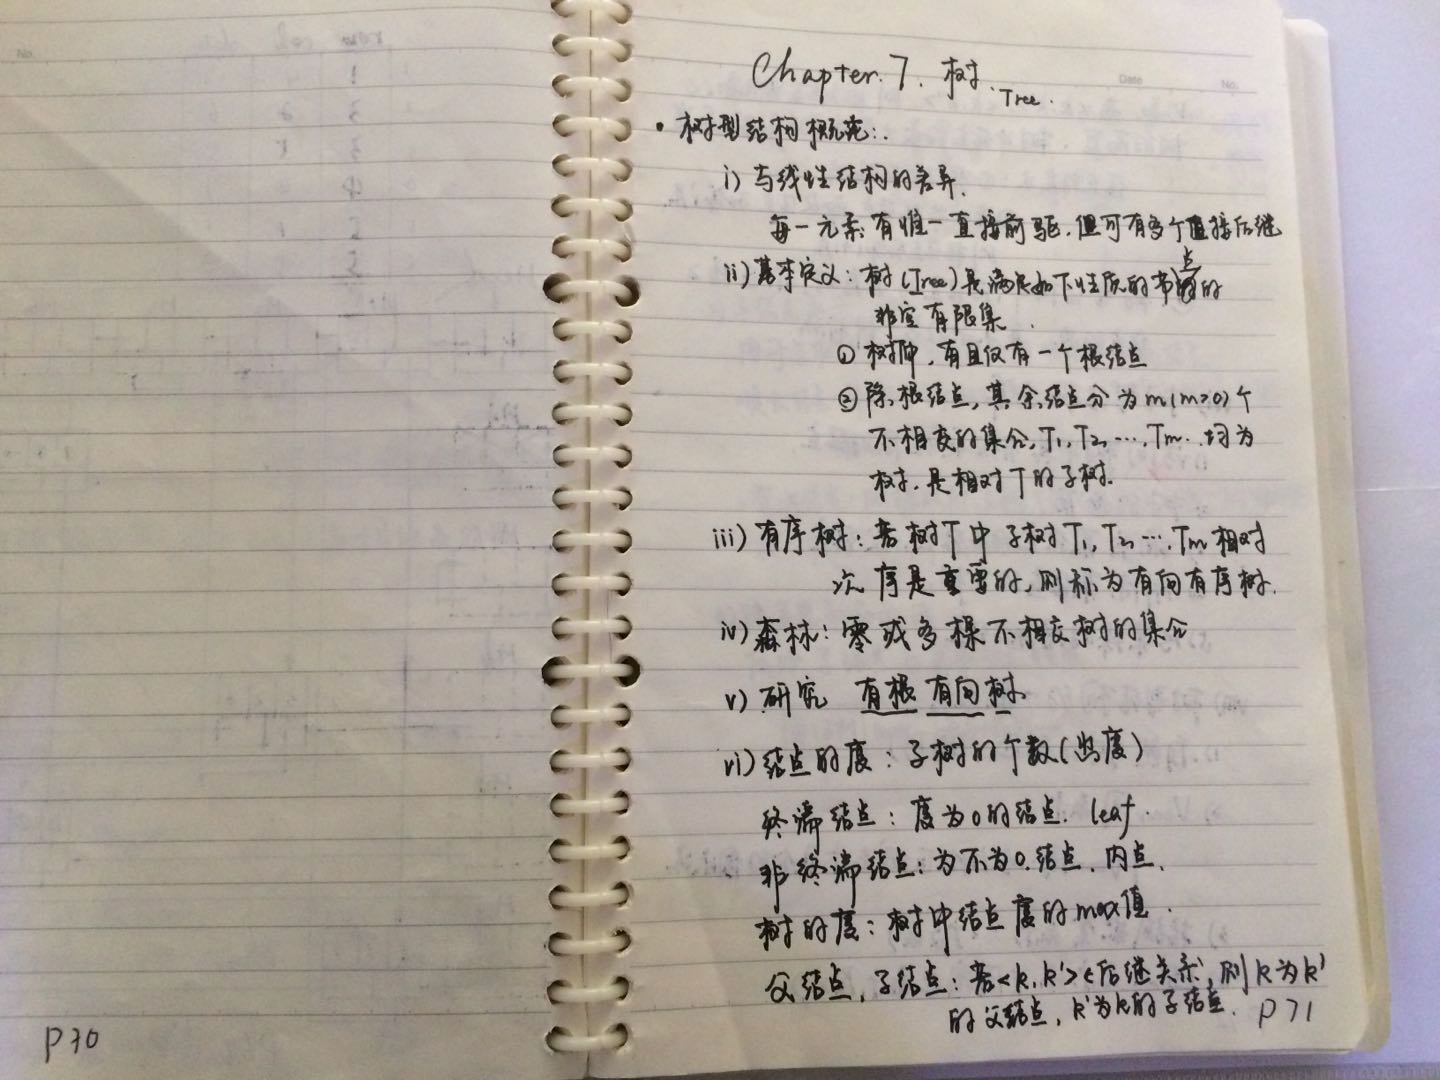 Chapter. 7. 树.
Tree.
• 树型结构概论:.
i) 与线性结构的差异.
每一元素有惟一直接前驱.但可有多个直接后继
ii) 基本定义: 树(Tree)是满足如下性质的带点的
非空有限集.
① 树中,有且仅有一个根结点
② 除根结点,其余结点分为m(m>0)个
不相交的集合,T1,T2,…,Tm.均为
树.是相对T的子树.
iii) 有序树: 若树T中子树T1,T2,…,Tm相对
次序是重要的,则称为有向有序树.
iv) 森林: 零或多棵不相交树的集合
v) 研究 有根有向树.
vi) 结点的度: 子树的个数(出度)
终端结点: 度为0的结点. leaf.
非终端结点: 为不为0.结点.内点.
树的度: 树中结点度的max值.
父结点,子结点: 若<k,k'>∈后继关系,则k为k'
的父结点,k'为k的子结点.
P71
P70
No.
Date
No.